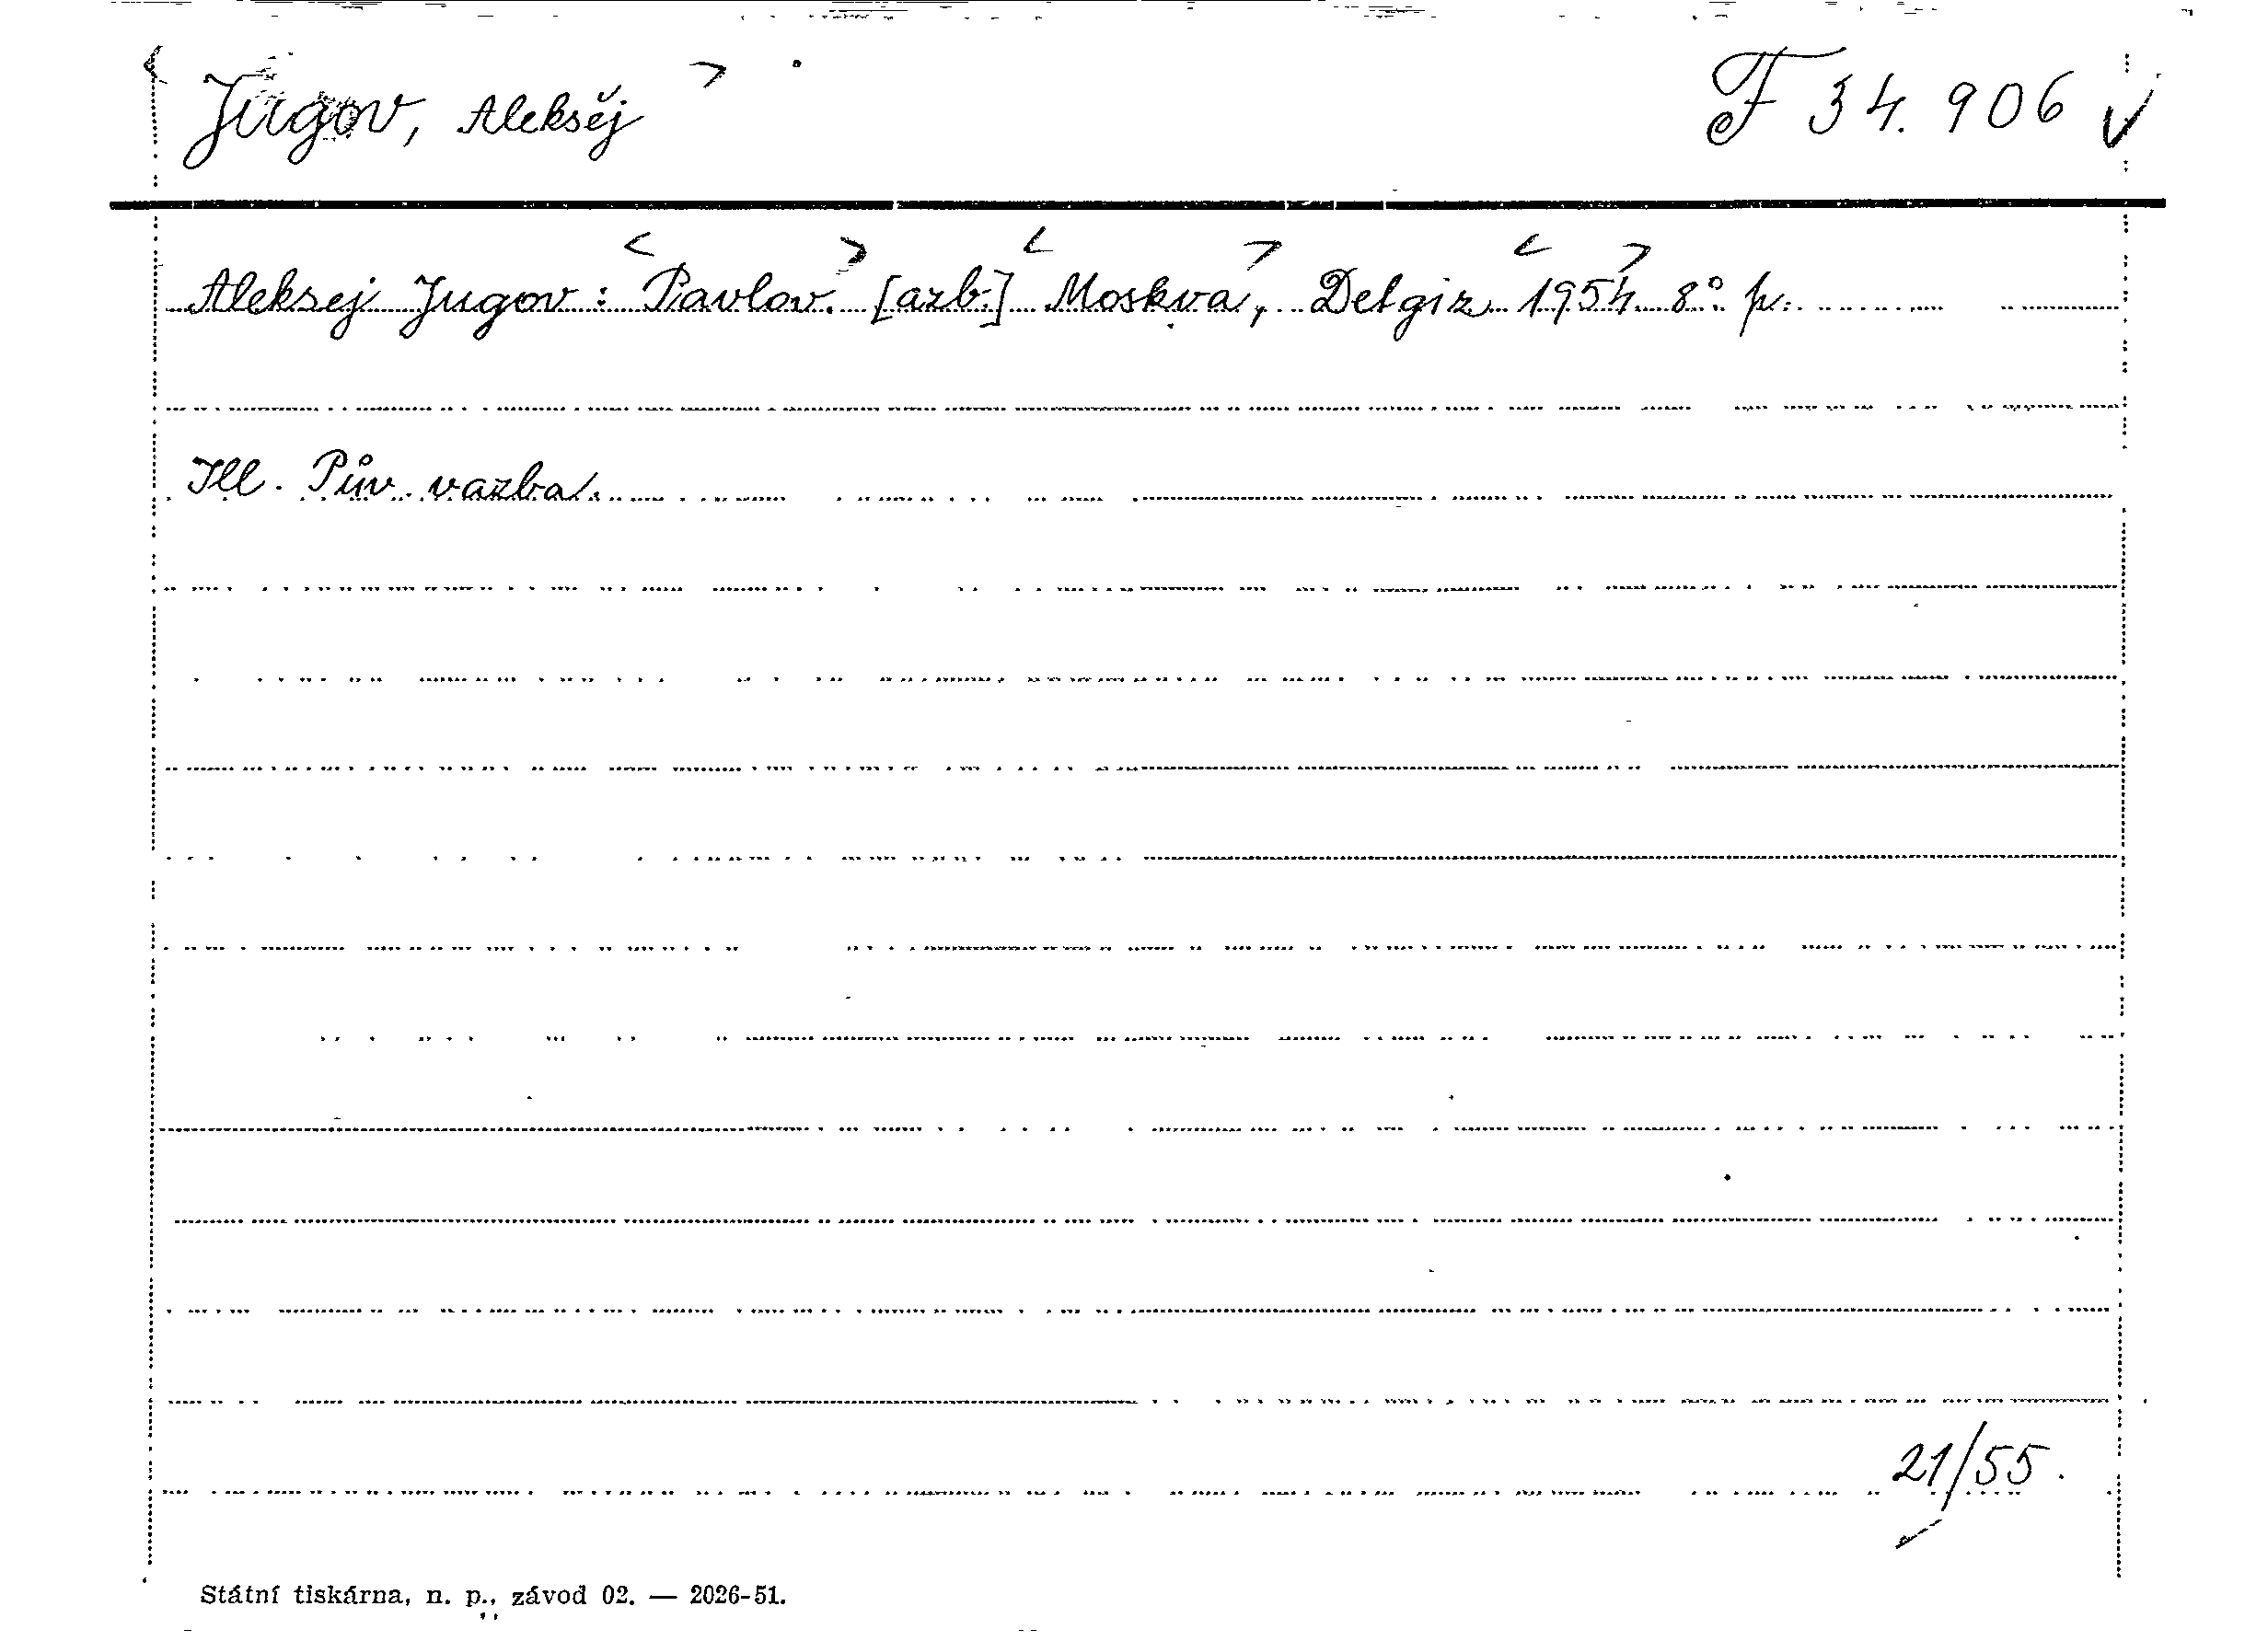 Jugov, Aleksěj F 34.906
Aleksej Jugov: Pavlov. [azb.] Moskva, Detgiz 1954. 8°. p.
Ill. Pův. vazba.
21/55.
Státní tiskárna, n. p., závod 02. — 2026-51.